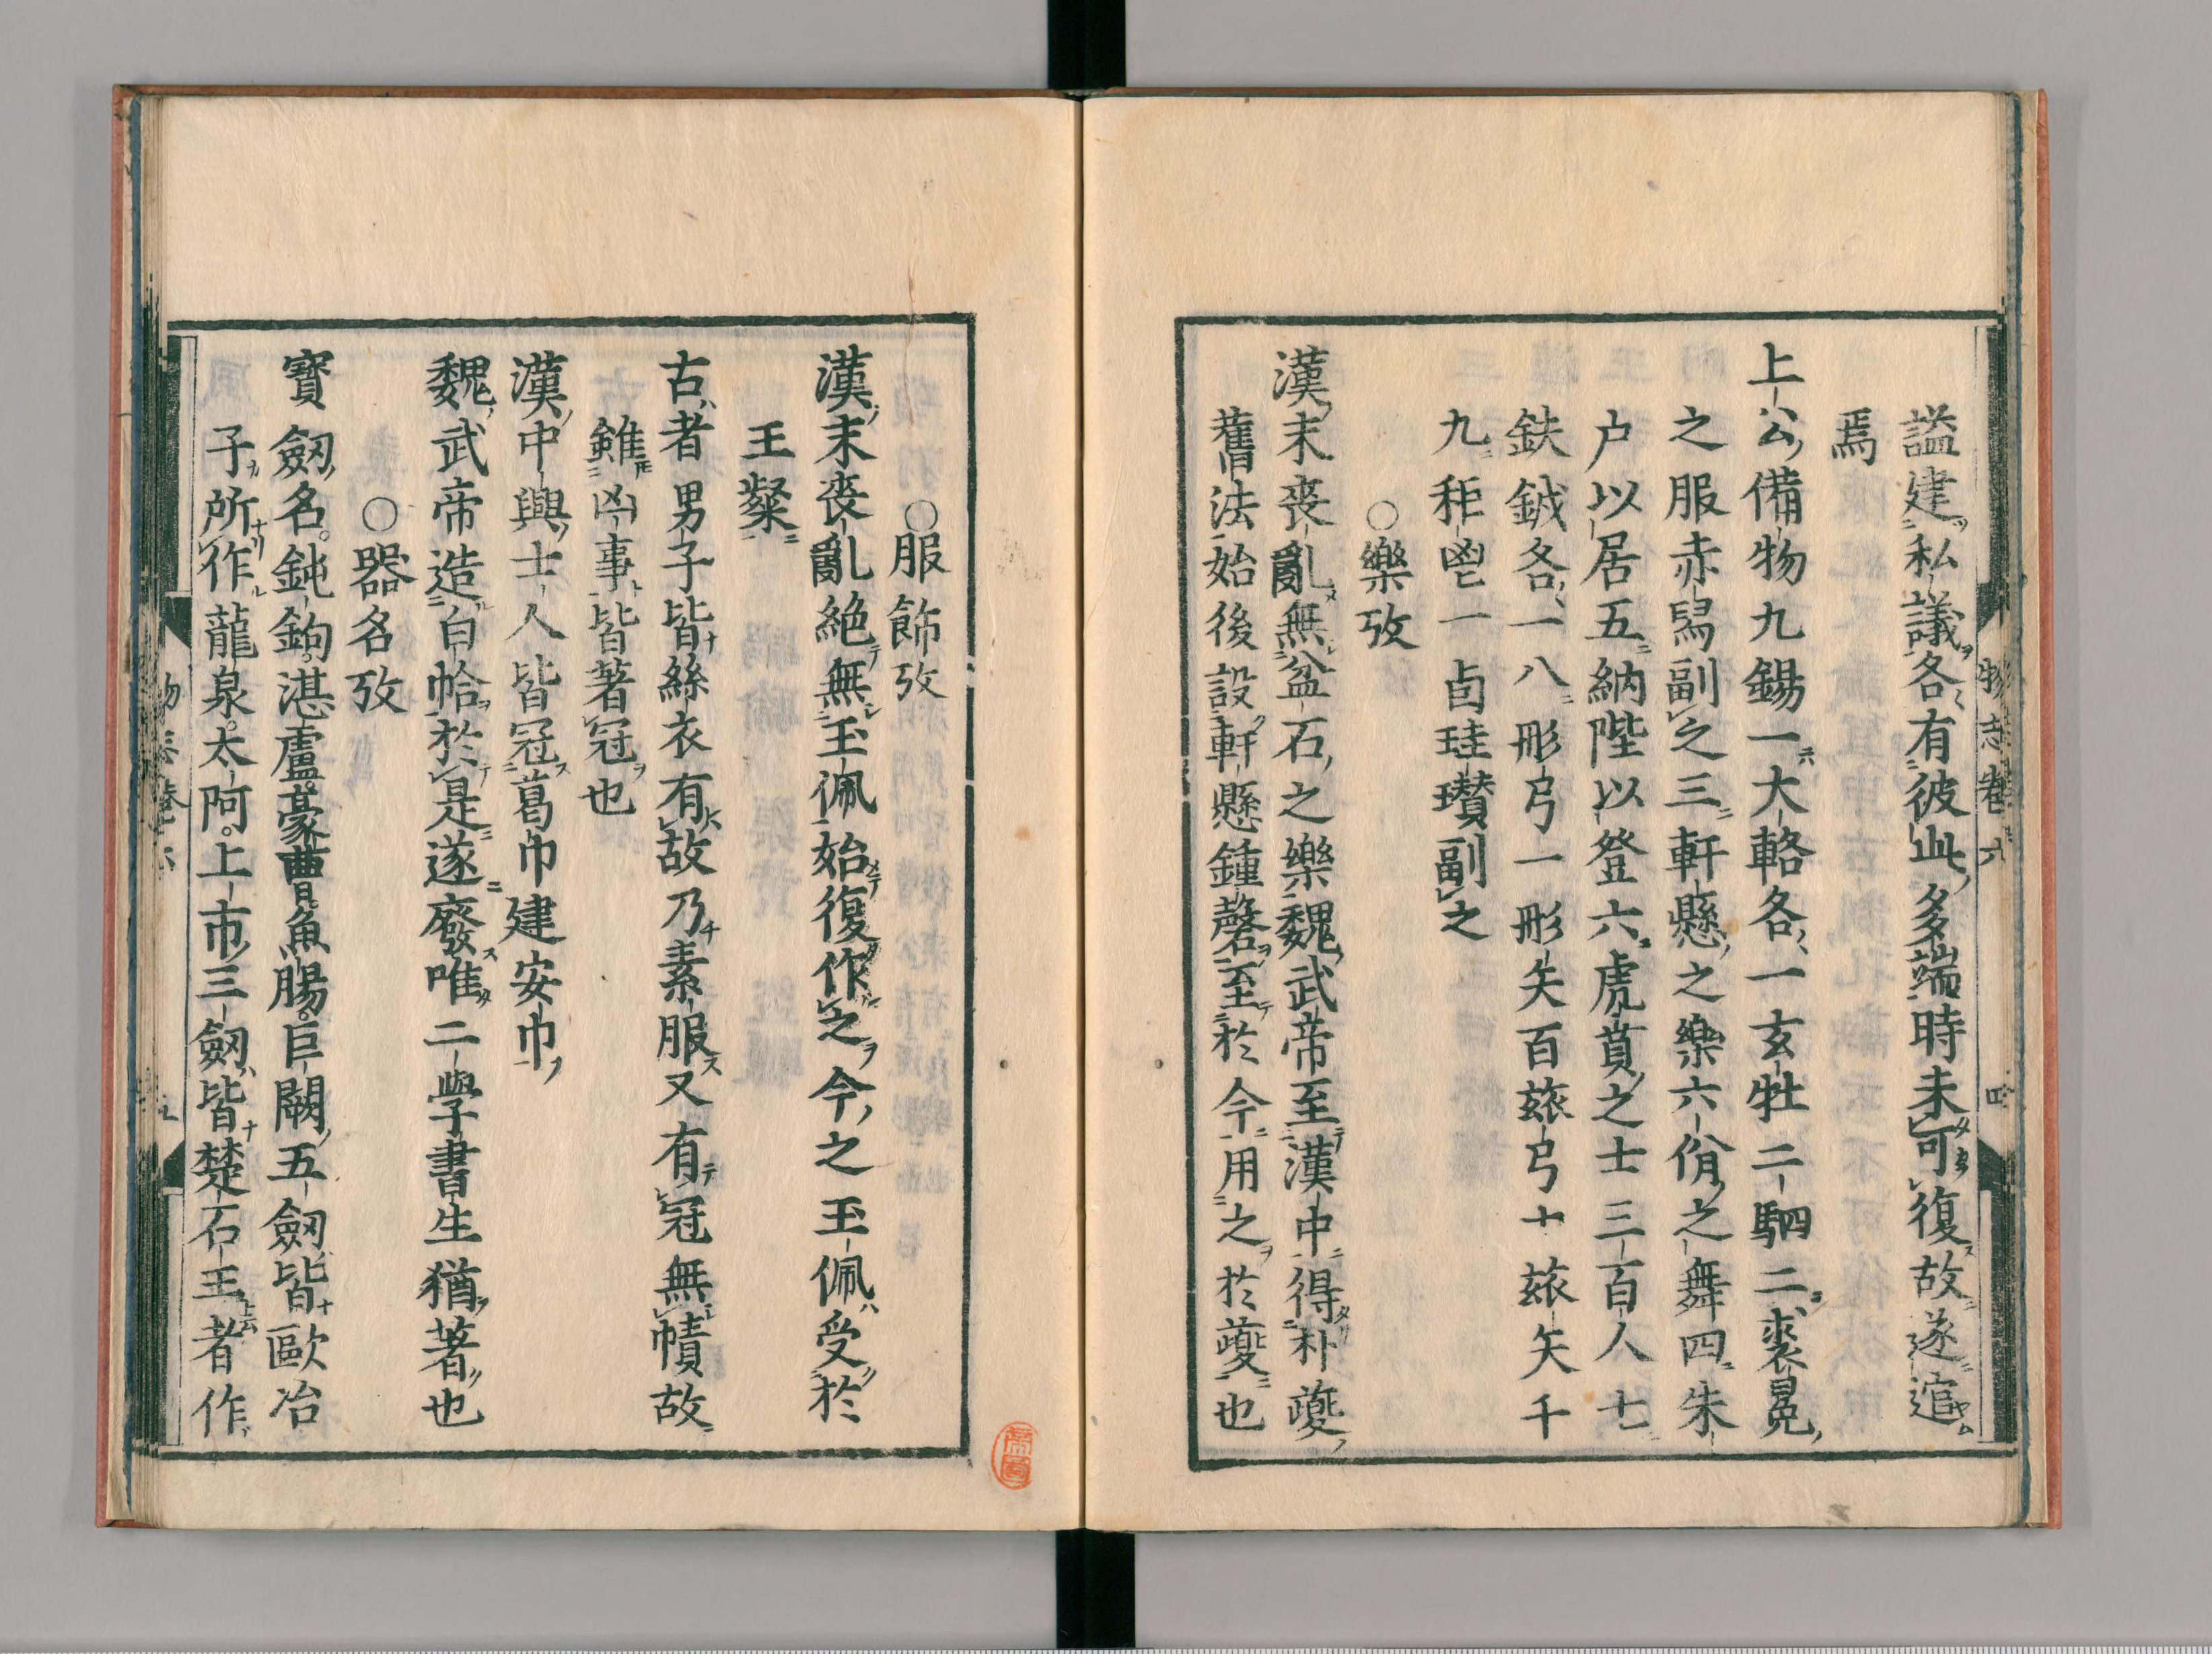 謚建私議各有彼此多端時未可復故遂逭
焉
上公備物九錫一大輅各一玄牡二駟二袞冕
之服赤舄副之三軒懸之樂六佾之舞四朱
户以居五納陛以登六虎賁之士三百人七
鈇鉞各一八彤弓一彤矢百玈弓十玈矢千
九秬鬯一卣珪瓚副之
○樂攷
漢末喪亂無金石之樂魏武帝至漢中得杜夔
舊法始後設軒懸鍾磬至於今用之於夔也
○服飾攷
漢末喪亂絶無玉佩始復作之今之玉佩受於
王粲
古者男子皆絲衣有故乃素服又有冠無幘故
雖凶事皆著冠也
漢中興士人皆冠葛巾建安巾
魏武帝造白帢於是遂廢唯二學書生猶著也
○器名攷
寶劒名鈍鉤湛盧豪曹魚腸巨闕五劒皆歐冶
子所作龍泉太阿上市三劒皆楚石王者作
物志卷六
四